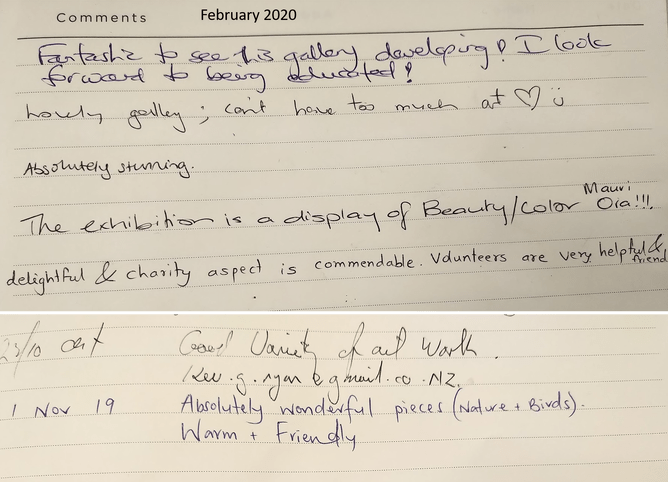 Comments February 2020
Fantastic to see this gallery developing! I look
forward to being educated!
Lovely gallery; can't have too much art ♡ ü
Absolutely stunning.
The exhibition is a display of Beauty/Color Mauri Ora!!!.
delightful & charity aspect is commendable. Volunteers are very helpful & friend
23/10 Good Variety of art Work.
Kev.g.ryan@gmail.co.NZ.
1 Nov 19 Absolutely wonderful pieces (Nature + Birds).
Warm + Friendly